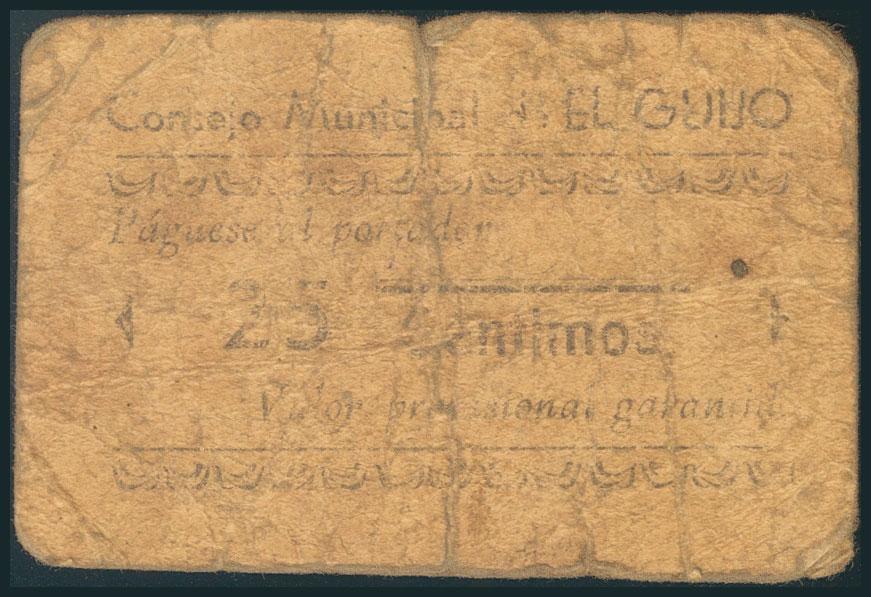 Consejo Municipal de EL GUIJO
Páguese al portador
25 Céntimos
Valor provisional garantid